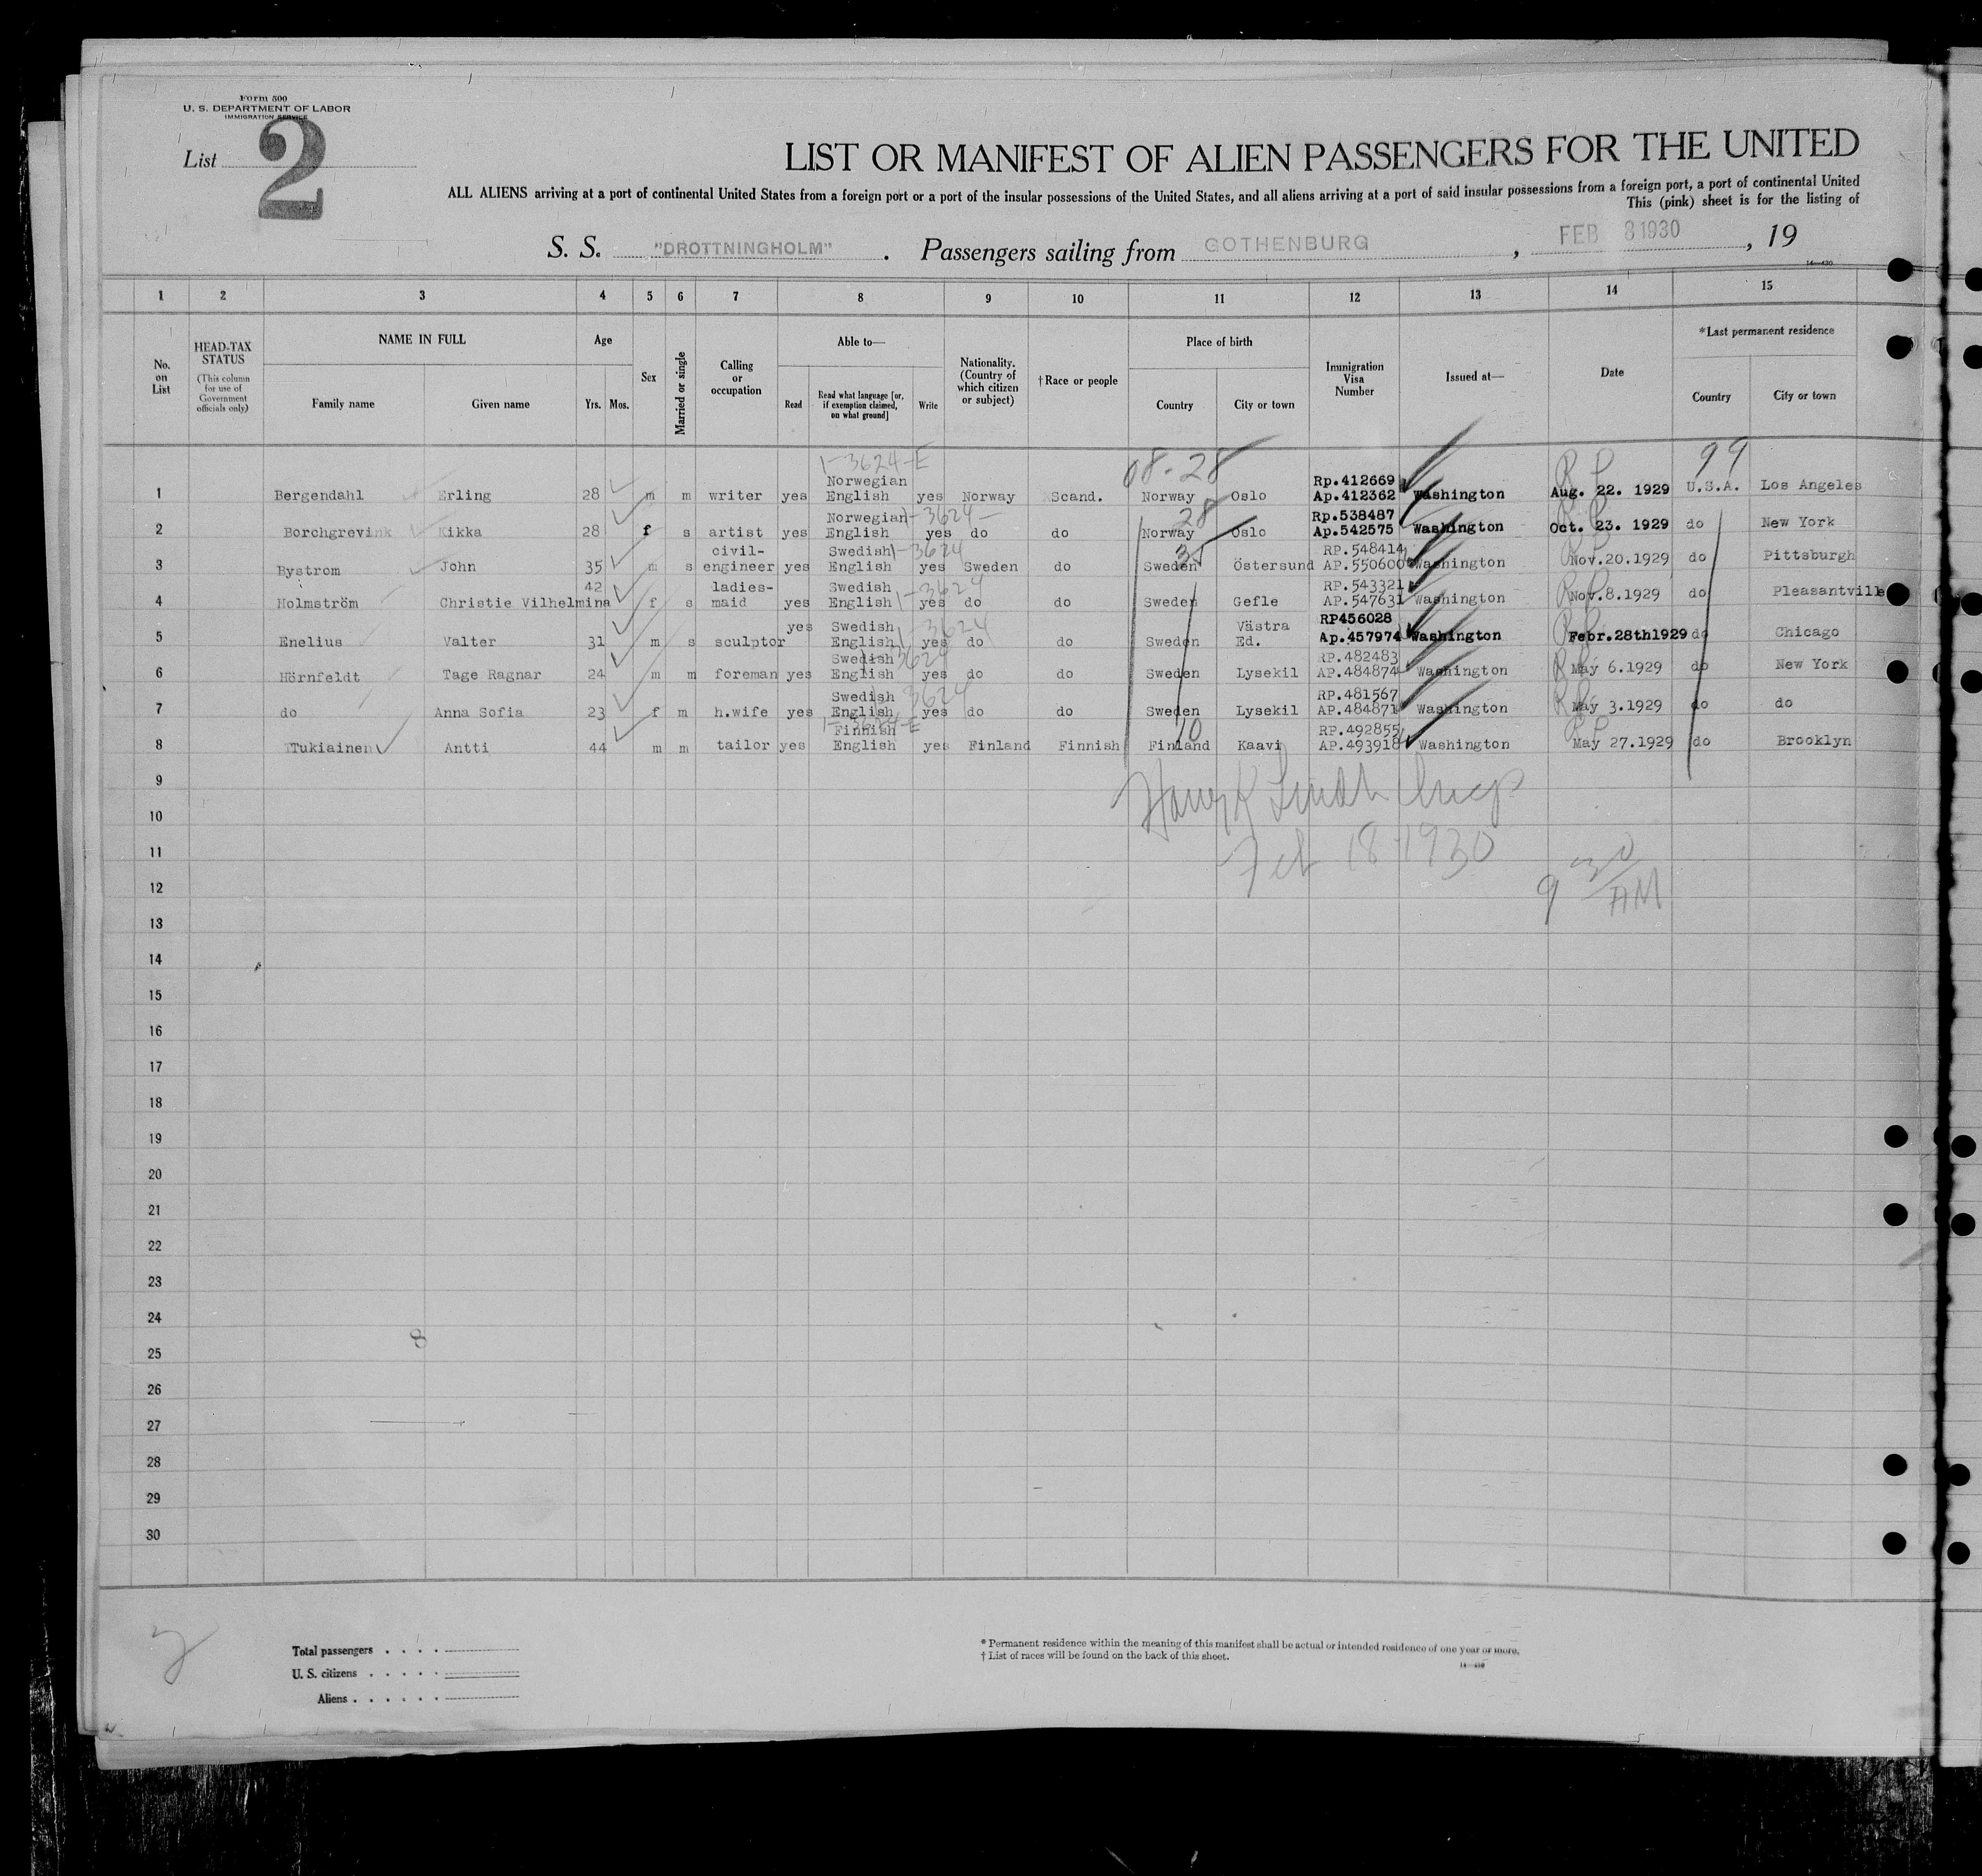 Form 500
U. S. DEPARTMENT OF LABOR
IMMIGRATION SERVICE
List 2
LIST OR MANIFEST OF ALIEN PASSENGERS FOR THE UNITED
ALL ALIENS arriving at a port of continental United States from a foreign port or a port of the insular possessions of the United States, and all aliens arriving at a port of said insular possessions from a foreign port, a port of continental United
This (pink) sheet is for the listing of
S. S. "DROTTNINGHOLM" . Passengers sailing from GOTHENBURG , FEB 8 1930 , 19
14—430
1 2 3 4 5 6 7 8 9 10 11 12 13 14 15
No. on List
HEAD-TAX STATUS (This column for use of Government officials only)
NAME IN FULL Family name Given name
Age Yrs. Mos.
Sex
Married or single
Calling or occupation
Able to— Read Read what language [or, if exemption claimed, on what ground] Write
Nationality. (Country of which citizen or subject)
† Race or people
Place of birth Country City or town
Immigration Visa Number
Issued at—
Date
*Last permanent residence Country City or town
1-3624-E 08-28 R P 99
1 Bergendahl Erling 28 m m writer yes Norwegian English yes Norway Scand. Norway Oslo Rp.412669 Ap.412362 Washington Aug. 22. 1929 U.S.A. Los Angeles
1-3624- 28
2 Borchgrevink Kikka 28 f s artist yes Norwegian English yes do do Norway Oslo Rp.538487 Ap.542575 Washington Oct. 23. 1929 do New York
1-3624
3 Bystrom John 35 m s civil-engineer yes Swedish English yes Sweden do Sweden Östersund RP.548414 AP.550600 Washington Nov.20.1929 do Pittsburgh
1-3624
4 Holmström Christie Vilhelmina 42 f s ladies-maid yes Swedish English yes do do Sweden Gefle RP.543321 AP.547631 Washington Nov.8.1929 do Pleasantville
1-3624
5 Enelius Valter 31 m s sculptor yes Swedish English yes do do Sweden Västra Ed. RP456028 Ap.457974 Washington Febr.28th1929 do Chicago
3624
6 Hörnfeldt Tage Ragnar 24 m m foreman yes Swedish English yes do do Sweden Lysekil RP.482483 AP.484874 Washington May 6.1929 do New York
3624
7 do Anna Sofia 23 f m h.wife yes Swedish English yes do do Sweden Lysekil RP.481567 AP.484871 Washington May 3.1929 do do
1-3624-E 10 R P
8 TTukiainen Antti 44 m m tailor yes Finnish English yes Finland Finnish Finland Kaavi RP.492855 AP.493918 Washington May 27.1929 do Brooklyn
9
10
11 Feb 18 1930
12 9 30 AM
13
14
15
16
17
18
19
20
21
22
23
24
8
25
26
27
28
29
30
2
Total passengers . . . .
U. S. citizens . . . . .
Aliens . . . . . .
* Permanent residence within the meaning of this manifest shall be actual or intended residence of one year or more.
† List of races will be found on the back of this sheet.
14—430